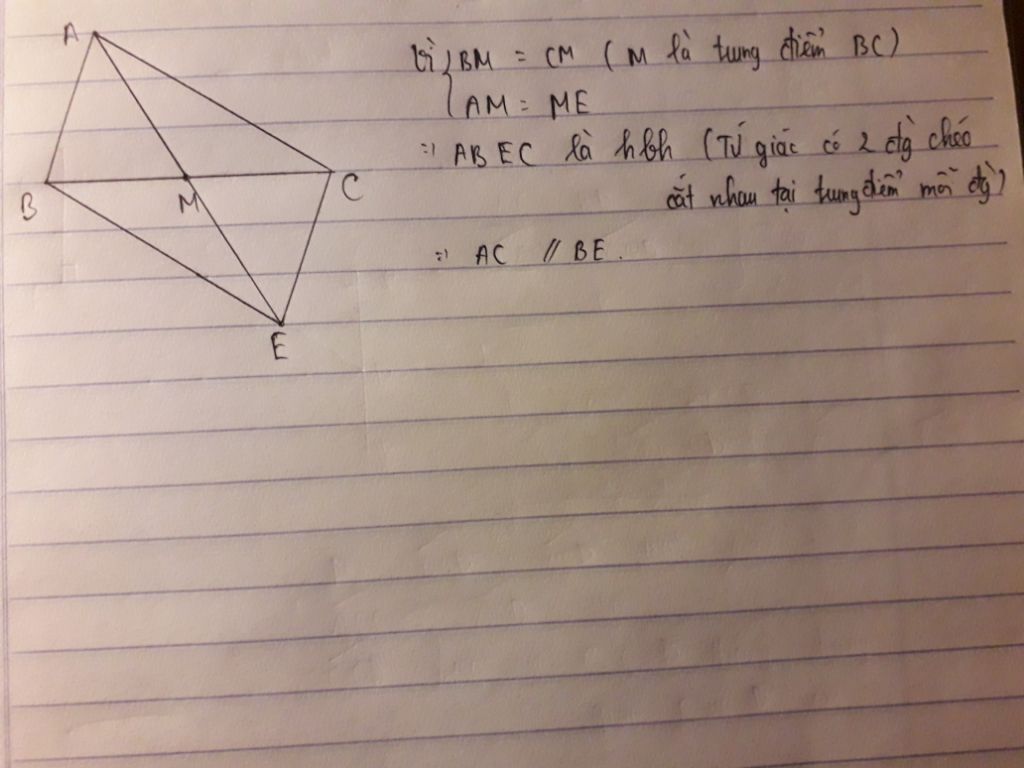 A
Vì { BM = CM ( M là trung điểm BC )
AM = ME
=> ABEC là hbh ( Tứ giác có 2 đg chéo
B
M
C
cắt nhau tại trung điểm mỗi đg )
=> AC // BE .
E